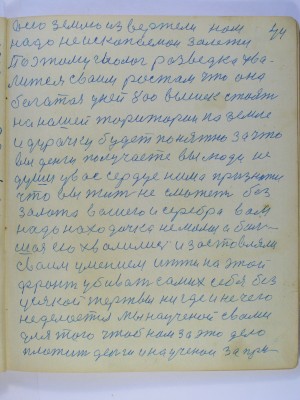 44
надо не ископаемой залежи
Поэтому геолог разведка хва-
лится своим ростом что она
богатая у ней 800 вышек стоят
на нашей территории на земле
и дурачку будет понятно за что
вы деньги получаете вы люди не
души у вас сердце нима признать
что вы жить не сможете без
золота вашего и серебра вам
надо находится немалы а боль-
шая его хвалилися и заставляли
своим умением итти на этой
фронт убивать самих себя без
усякой жертвы нигде и нечего
не делается мы наученой своми
для того чтоб нам за это дело
плотит деньги и наученой за пры-